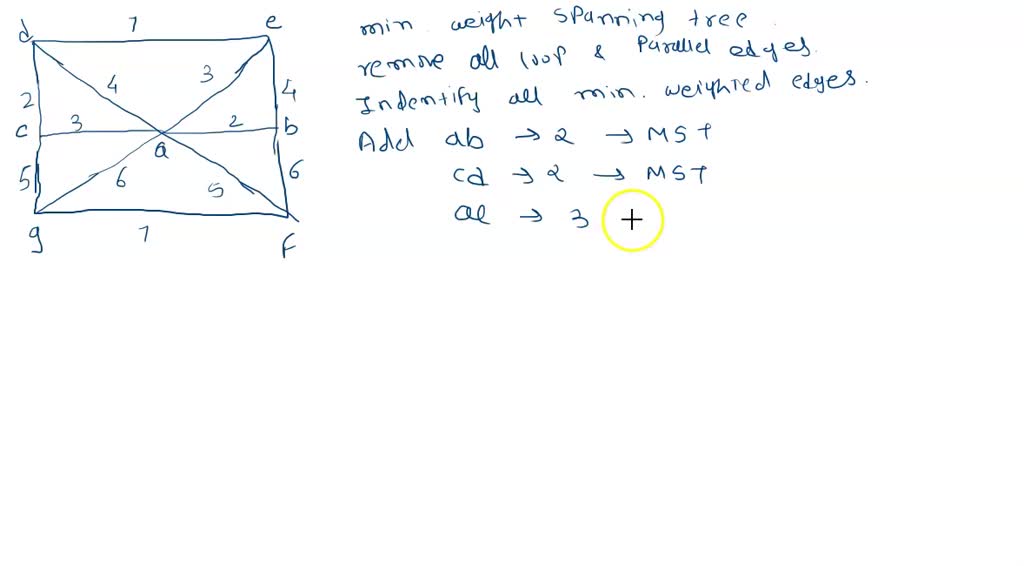 d 7 e
4 3
2 4
c 3 2 b
a
5 6 5 6
g 7 f
min. weight spanning tree.
remove all loop & Parallel edges.
Indentify all min. weighted edges.
Add ab → 2 → MST
cd → 2 → MST
ae → 3